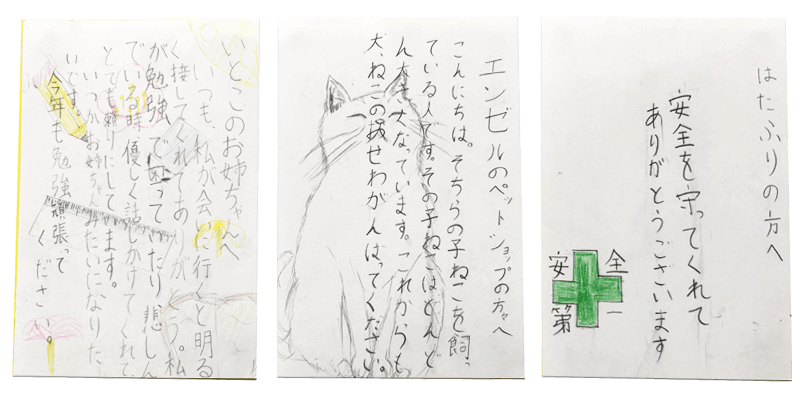 いとこのお姉ちゃんへ
いつも、私が会いに行くと明る
く接してくれてありがとう。私
が勉強で困っていたり悲しん
でいる時優しく話しかけてくれて
とても頼りにしてます。
いつかお姉ちゃんみたいになりた
いです。
今年も勉強頑張って
ください。
エンゼルのペットショップの方々へ
こんにちは。そちらの子ねこを飼っ
ている人です。その子ねこはどんど
ん大きくなっています。これからも
犬、ねこのせわがんばってください。
はたふりの方へ
安全を守ってくれて
ありがとうございます
安全
第一